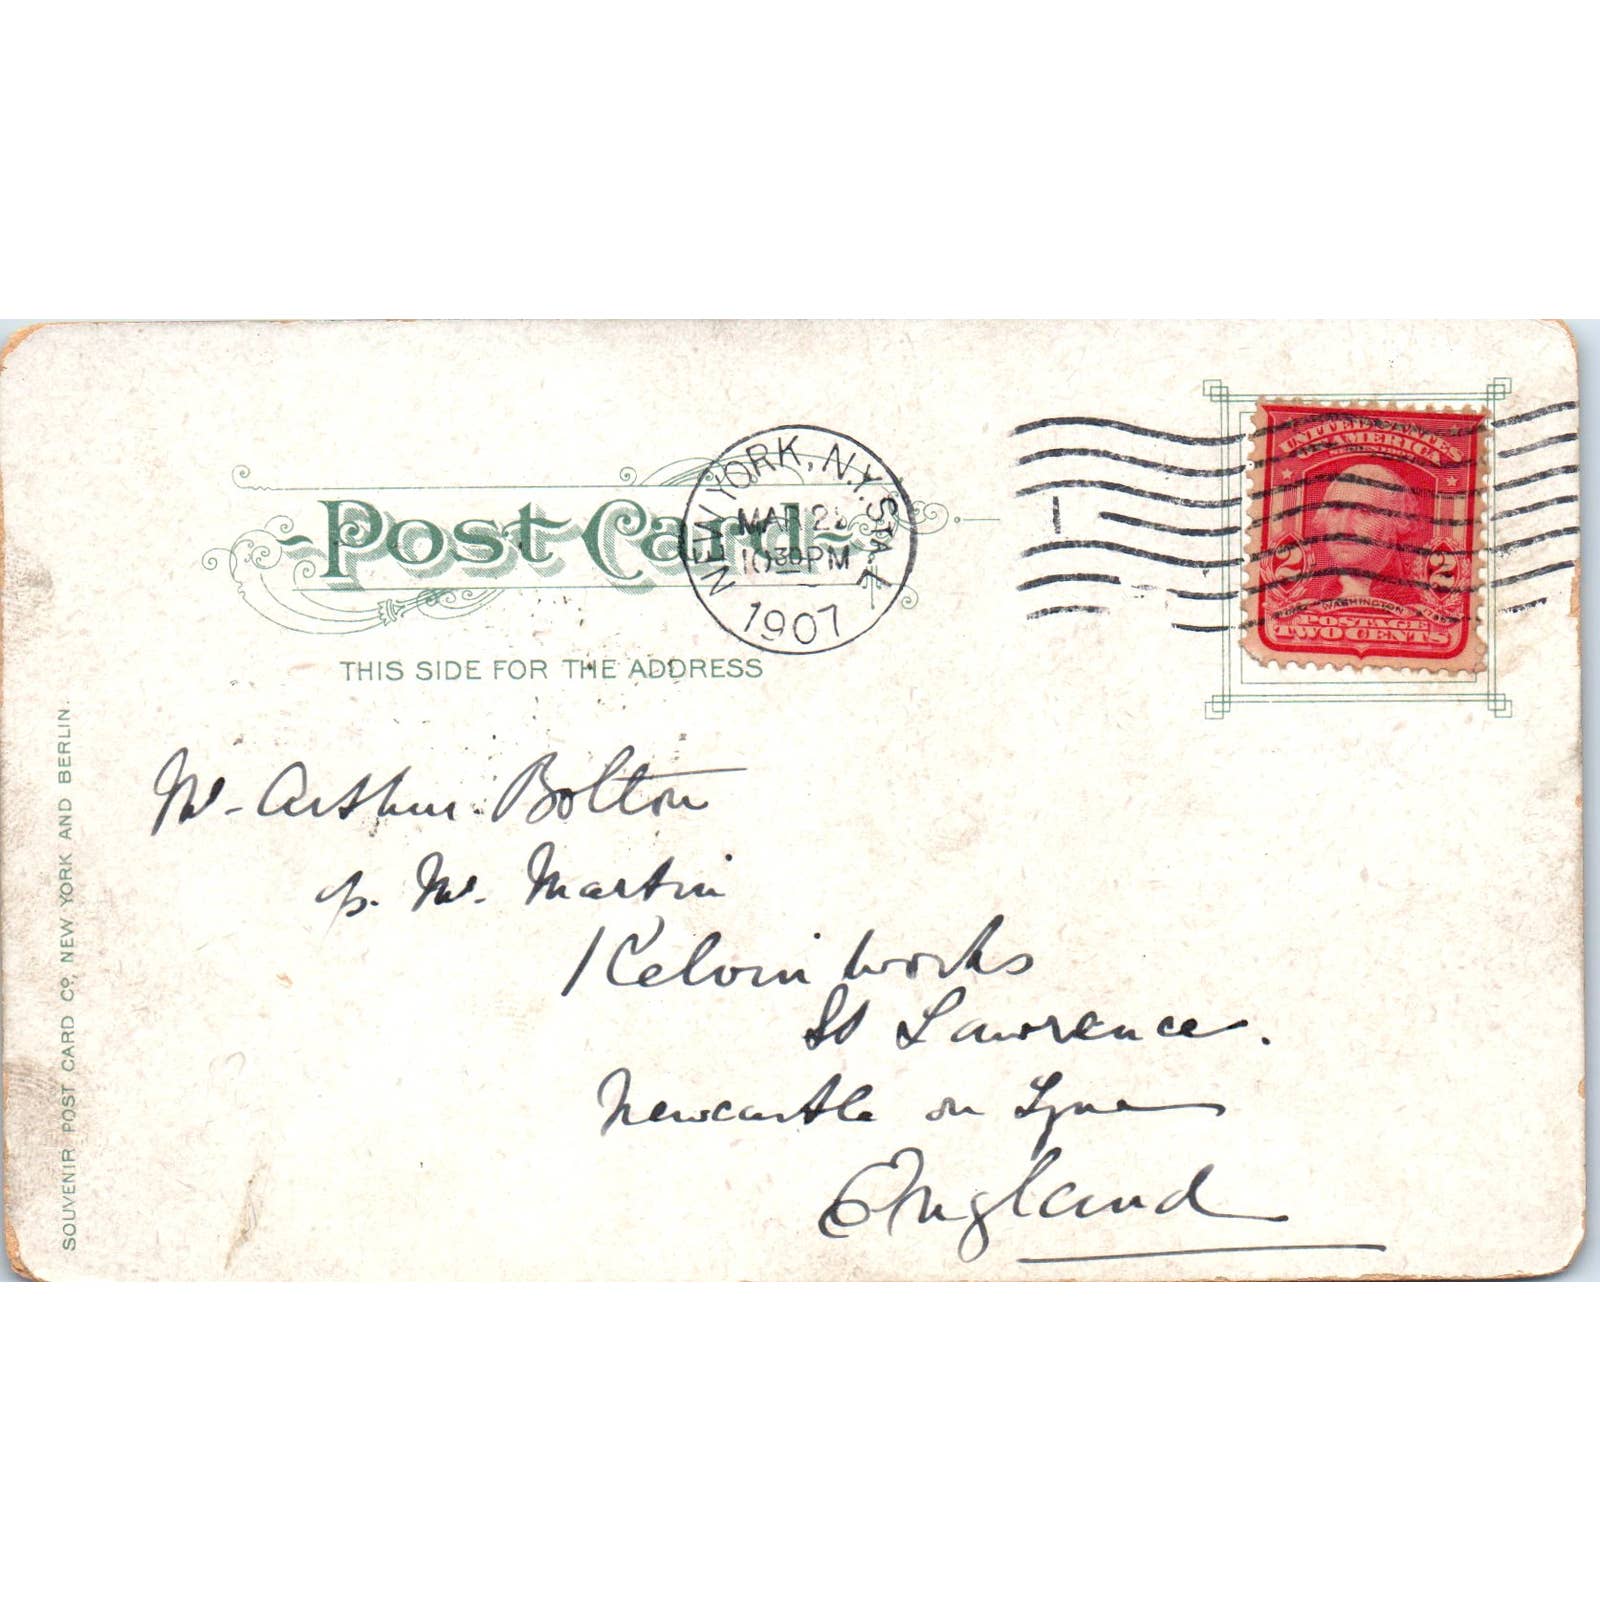 Post Card
NEW YORK, N.Y. STA. E
MAR 2
10 30 PM
1907
1
UNITED STATES
OF AMERICA
2 2
WASHINGTON
POSTAGE
TWO CENTS
THIS SIDE FOR THE ADDRESS
Mr. Arthur Bolton
Mr. Martin
Kelvin Works
St Lawrence.
Newcastle on Tyne
England
SOUVENIR POST CARD CO., NEW YORK AND BERLIN.